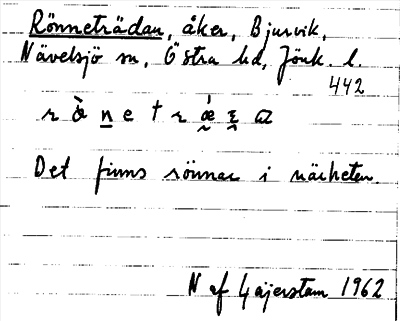 Rönneträdan, åker, Bjurvik,
Nävelsjö sn, Östra hd, Jönk. l.
442
Det finns rönnar i närheten.
N af Geijerstam 1962